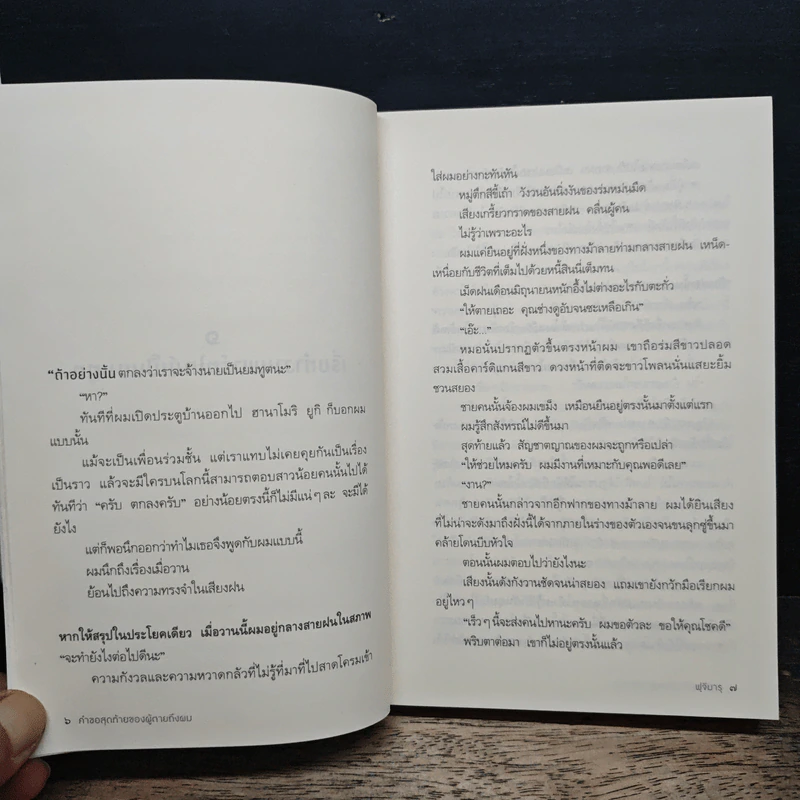 ๑
"ถ้าอย่างนั้น ตกลงว่าเราจะจ้างนายเป็นยมทูตนะ"
"หา?"
ทันทีที่ผมเปิดประตูบ้านออกไป ฮานาโมริ ยูกิ ก็บอกผม
แบบนั้น
แม้จะเป็นเพื่อนร่วมชั้น แต่เราแทบไม่เคยคุยกันเป็นเรื่อง
เป็นราว แล้วจะมีใครบนโลกนี้สามารถตอบสาวน้อยคนนั้นไปได้
ทันทีว่า "ครับ ตกลงครับ" อย่างน้อยตรงนี้ก็ไม่มีแน่ๆ ละ จะมีได้
ยังไง
แต่ก็พอนึกออกว่าทำไมเธอจึงพูดกับผมแบบนี้
ผมนึกถึงเรื่องเมื่อวาน
ย้อนไปถึงความทรงจำในเสียงฝน
หากให้สรุปในประโยคเดียว เมื่อวานนี้ผมอยู่กลางสายฝนในสภาพ
"จะทำยังไงต่อไปดีนะ"
ความกังวลและความหวาดกลัวที่ไม่รู้ที่มาที่ไปสาดโครมเข้า
๖ คำขอสุดท้ายของผู้ตายถึงผม
ใส่ผมอย่างกะทันหัน
หมู่ตึกสีขี้เถ้า วังวนอันนิ่งงันของร่มหม่นมืด
เสียงเกรี้ยวกราดของสายฝน คลื่นผู้คน
ไม่รู้ว่าเพราะอะไร
ผมแค่ยืนอยู่ที่ฝั่งหนึ่งของทางม้าลายท่ามกลางสายฝน เหน็ด-
เหนื่อยกับชีวิตที่เต็มไปด้วยหนี้สินนี่เต็มทน
เม็ดฝนเดือนมิถุนายนหนักอึ้งไม่ต่างอะไรกับตะกั่ว
"ให้ตายเถอะ คุณช่างดูอับจนซะเหลือเกิน"
"เอ๊ะ..."
หมอนั่นปรากฏตัวขึ้นตรงหน้าผม เขาถือร่มสีขาวปลอด
สวมเสื้อคาร์ดิแกนสีขาว ดวงหน้าที่ติดจะขาวโพลนนั่นแสยะยิ้ม
ชวนสยอง
ชายคนนั้นจ้องผมเขม็ง เหมือนยืนอยู่ตรงนั้นมาตั้งแต่แรก
ผมรู้สึกสังหรณ์ไม่ดีขึ้นมา
สุดท้ายแล้ว สัญชาตญาณของผมจะถูกหรือเปล่า
"ให้ช่วยไหมครับ ผมมีงานที่เหมาะกับคุณพอดีเลย"
"งาน?"
ชายคนนั้นกล่าวจากอีกฟากของทางม้าลาย ผมได้ยินเสียง
ที่ไม่น่าจะดังมาถึงฝั่งนี้ได้จากภายในร่างของตัวเองจนขนลุกซู่ขึ้นมา
คล้ายโดนบีบหัวใจ
ตอนนั้นผมตอบไปว่ายังไงนะ
เสียงนั้นดังกังวานชัดจนน่าสยอง แถมเขายังกวักมือเรียกผม
อยู่ไหวๆ
"เร็วๆ นี้จะส่งคนไปหานะครับ ผมขอตัวละ ขอให้คุณโชคดี"
พริบตาต่อมา เขาก็ไม่อยู่ตรงนั้นแล้ว
ฟุจิมารุ ๗